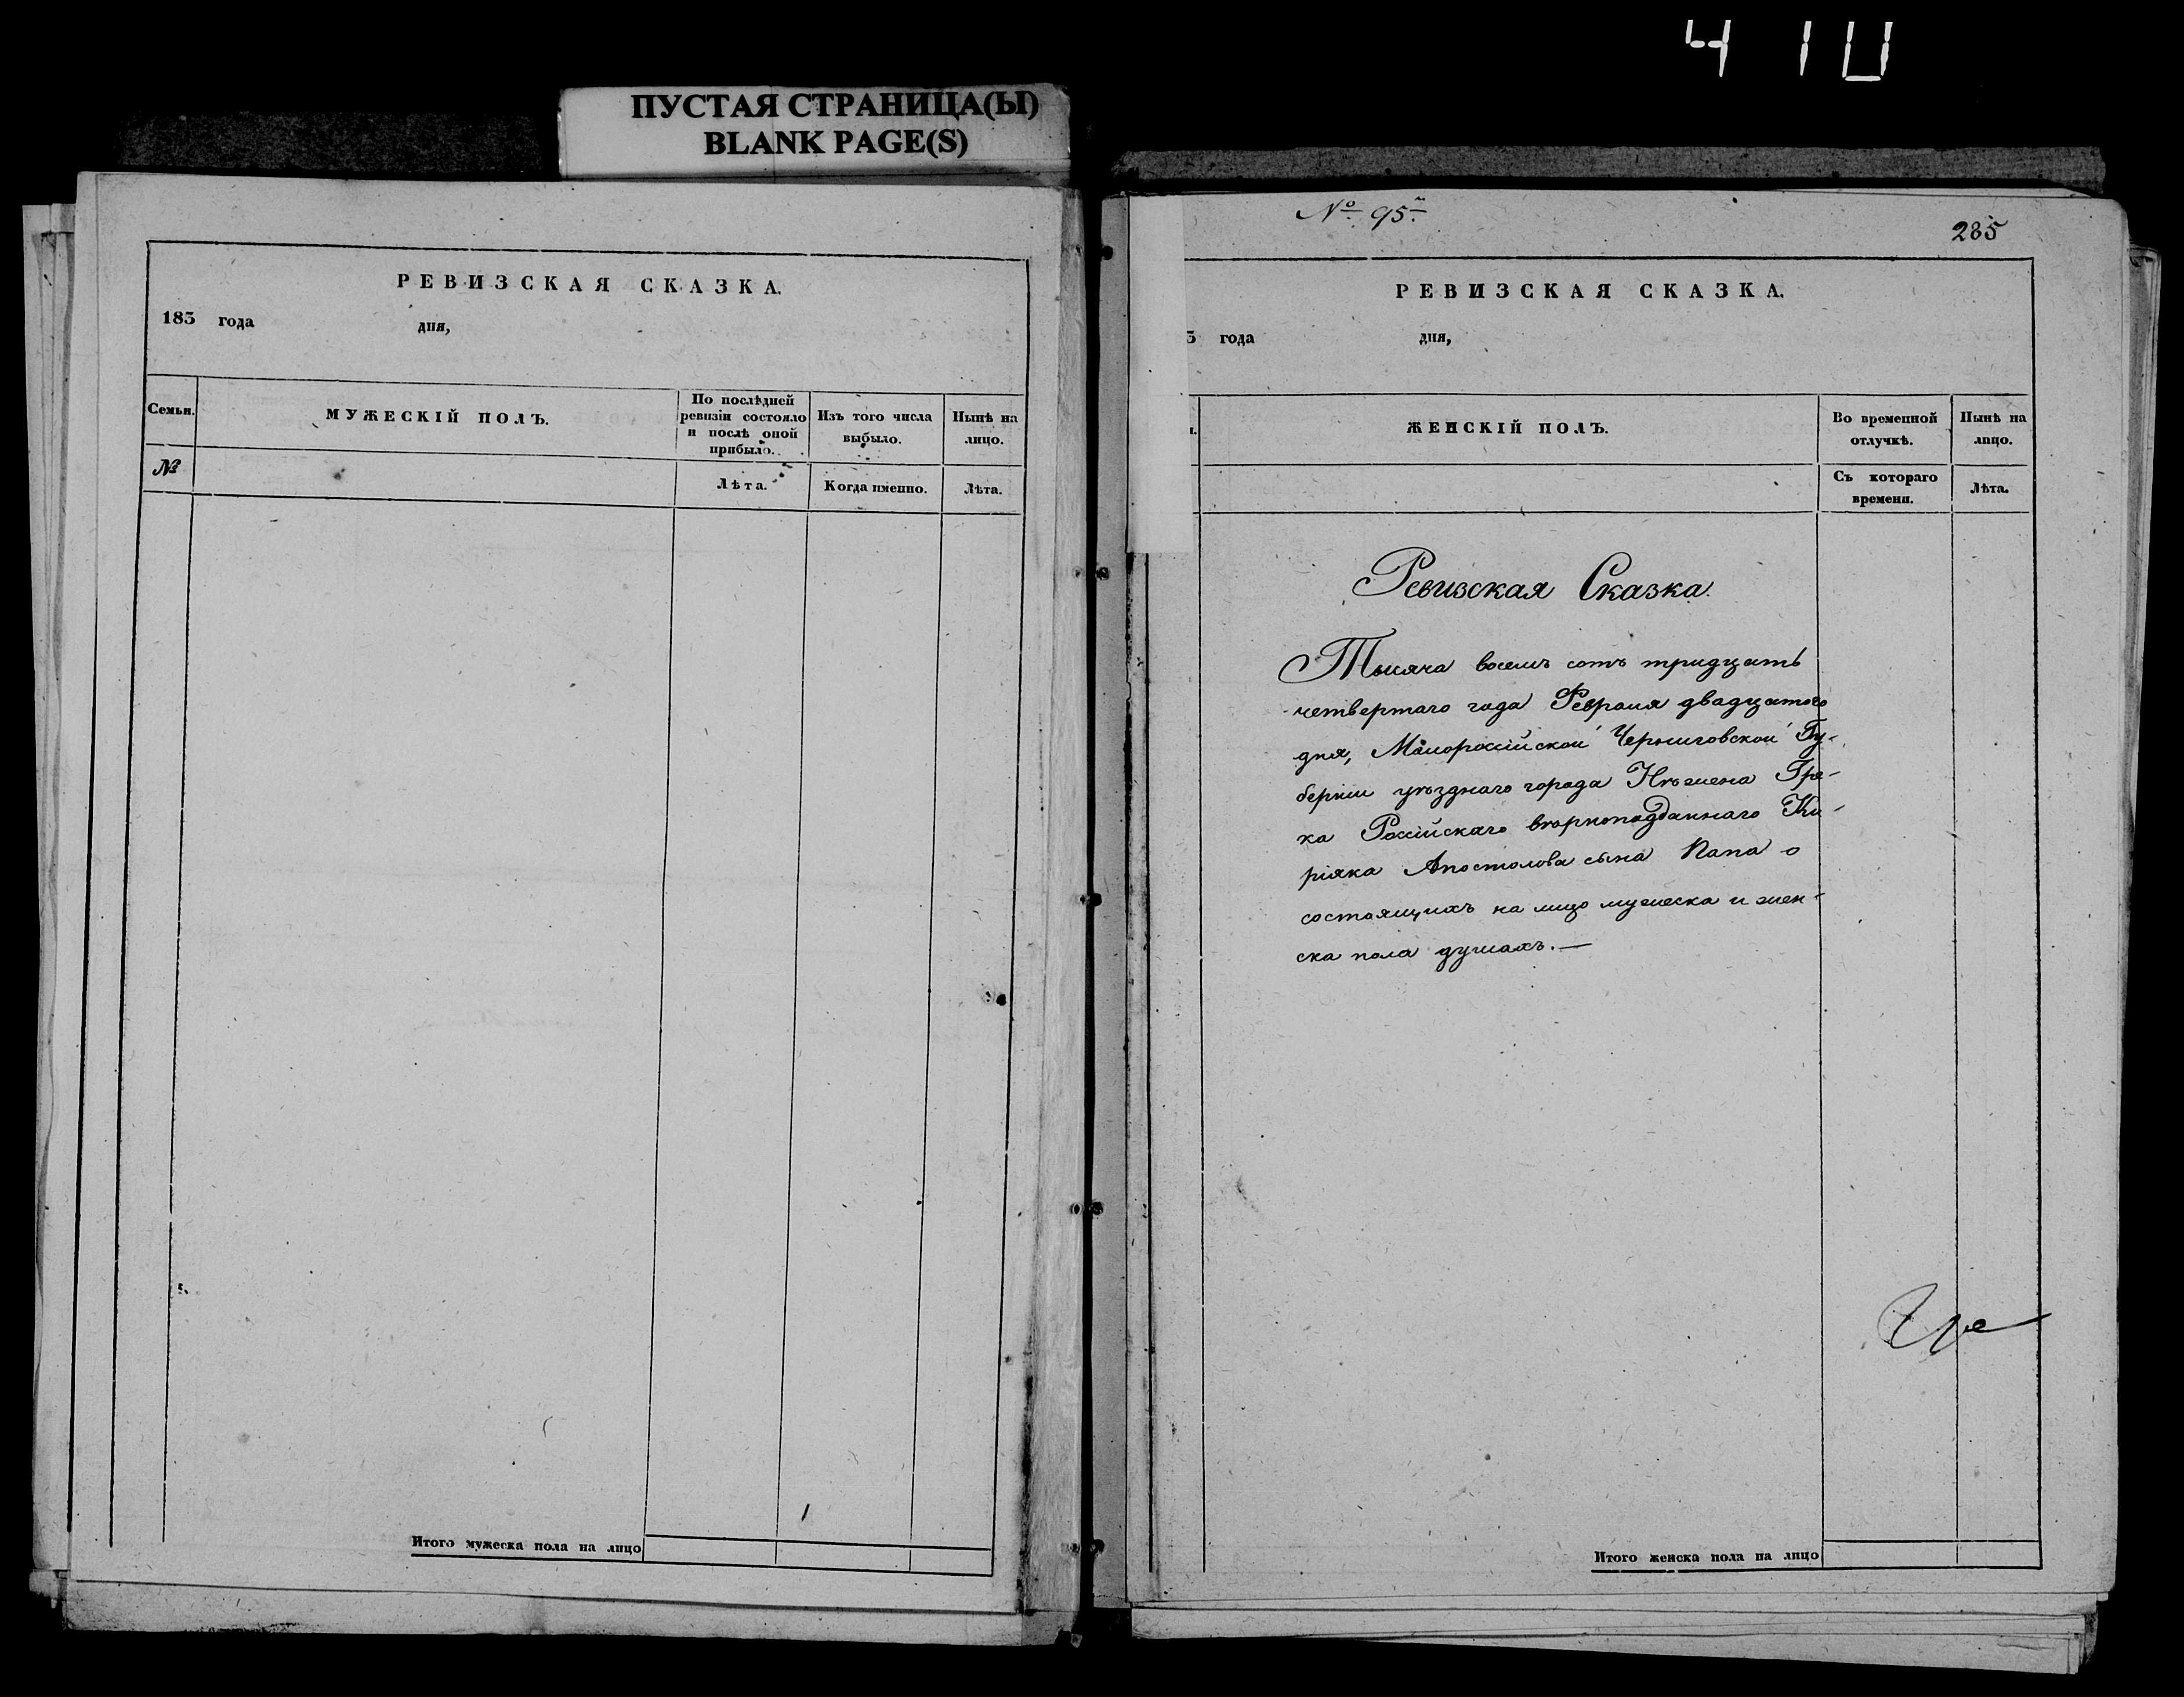 410
ПУСТАЯ СТРАНИЦА(Ы)
BLANK PAGE(S)
РЕВИЗСКАЯ СКАЗКА.
183 года дня,
Семьи.
МУЖЕСКІЙ ПОЛЪ.
По послѣдней
ревизіи состояло
и послѣ оной
прибыло.
Изъ того числа
выбыло.
Нынѣ на
лицо.
№
Лѣта.
Когда именно.
Лѣта.
Итого мужеска пола на лицо
№ 95й
285
РЕВИЗСКАЯ СКАЗКА.
3 года дня,
ЖЕНСКІЙ ПОЛЪ.
Во временной
отлучкѣ.
Нынѣ на
лицо.
Съ котораго
времени.
Лѣта.
Ревизская Сказка.
Тысяча восемъ сотъ тридцать
четвертаго года Февраля двадцатого
дня, Малоросійской Черниговской Гу-
берніи уѣзднаго города Нѣжена Гре-
ка Россійскаго вѣрноподданнаго Ки-
ріяка Апостолова сына Папа о
состоящихъ на лицо мужеска и жен-
ска пола душахъ.—
Итого женска пола на лицо